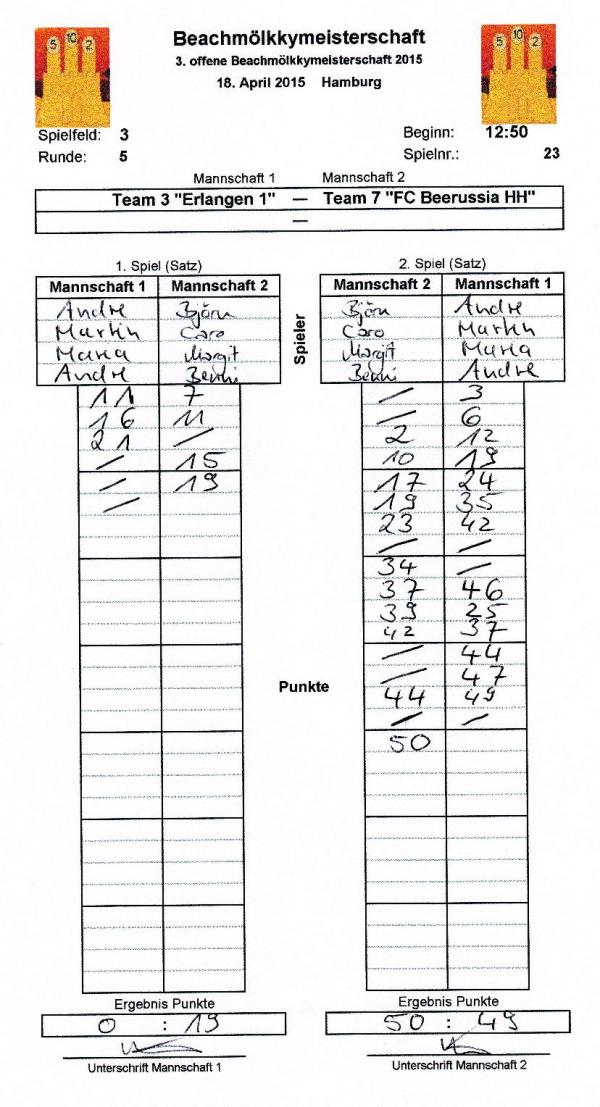 5 10 2
Beachmölkkymeisterschaft
5 10 2
3. offene Beachmölkkymeisterschaft 2015
18. April 2015 Hamburg
Spielfeld: 3 Beginn: 12:50
Runde: 5 Spielnr.: 23
Mannschaft 1 Mannschaft 2
Team 3 "Erlangen 1" — Team 7 "FC Beerussia HH"
—
1. Spiel (Satz) 2. Spiel (Satz)
Mannschaft 1 Mannschaft 2 Mannschaft 2 Mannschaft 1
Andre Björn Björn Andre
Martin Caro Caro Martin
Maria Margit Margit Maria
Andre Benni Benni Andre
Spieler
11 7 / 3
16 11 / 6
21 / 2 12
/ 15 10 19
/ 19 17 24
/ 19 35
23 42
/ /
34 /
37 46
39 25
42 37
/ 44
/ 47
Punkte
44 49
/ /
50
Ergebnis Punkte Ergebnis Punkte
0 : 19 50 : 49
Unterschrift Mannschaft 1 Unterschrift Mannschaft 2